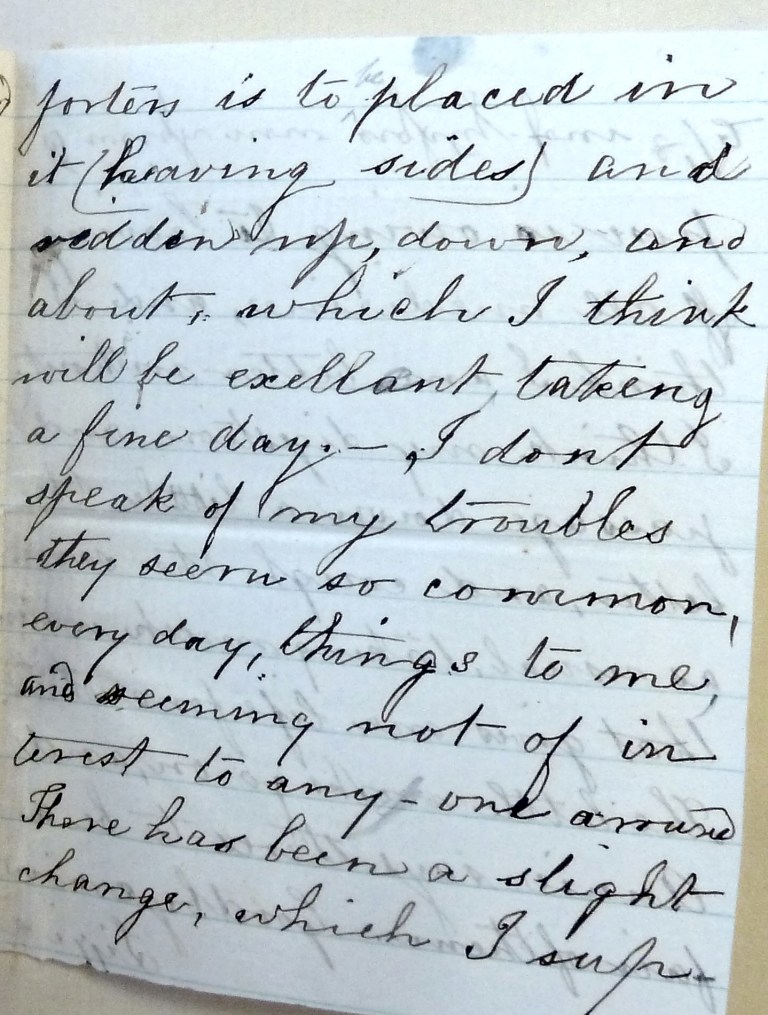 forters is to be placed in
it (heaving sides) and
redden up, down, and
about, which I think
will be exellant, takeing
a fine day. – I dont
speak of my troubles
they seem so common,
every day, things to me,
and seeming not of in
terest to any-one around
There has been a slight
change, which I sup-